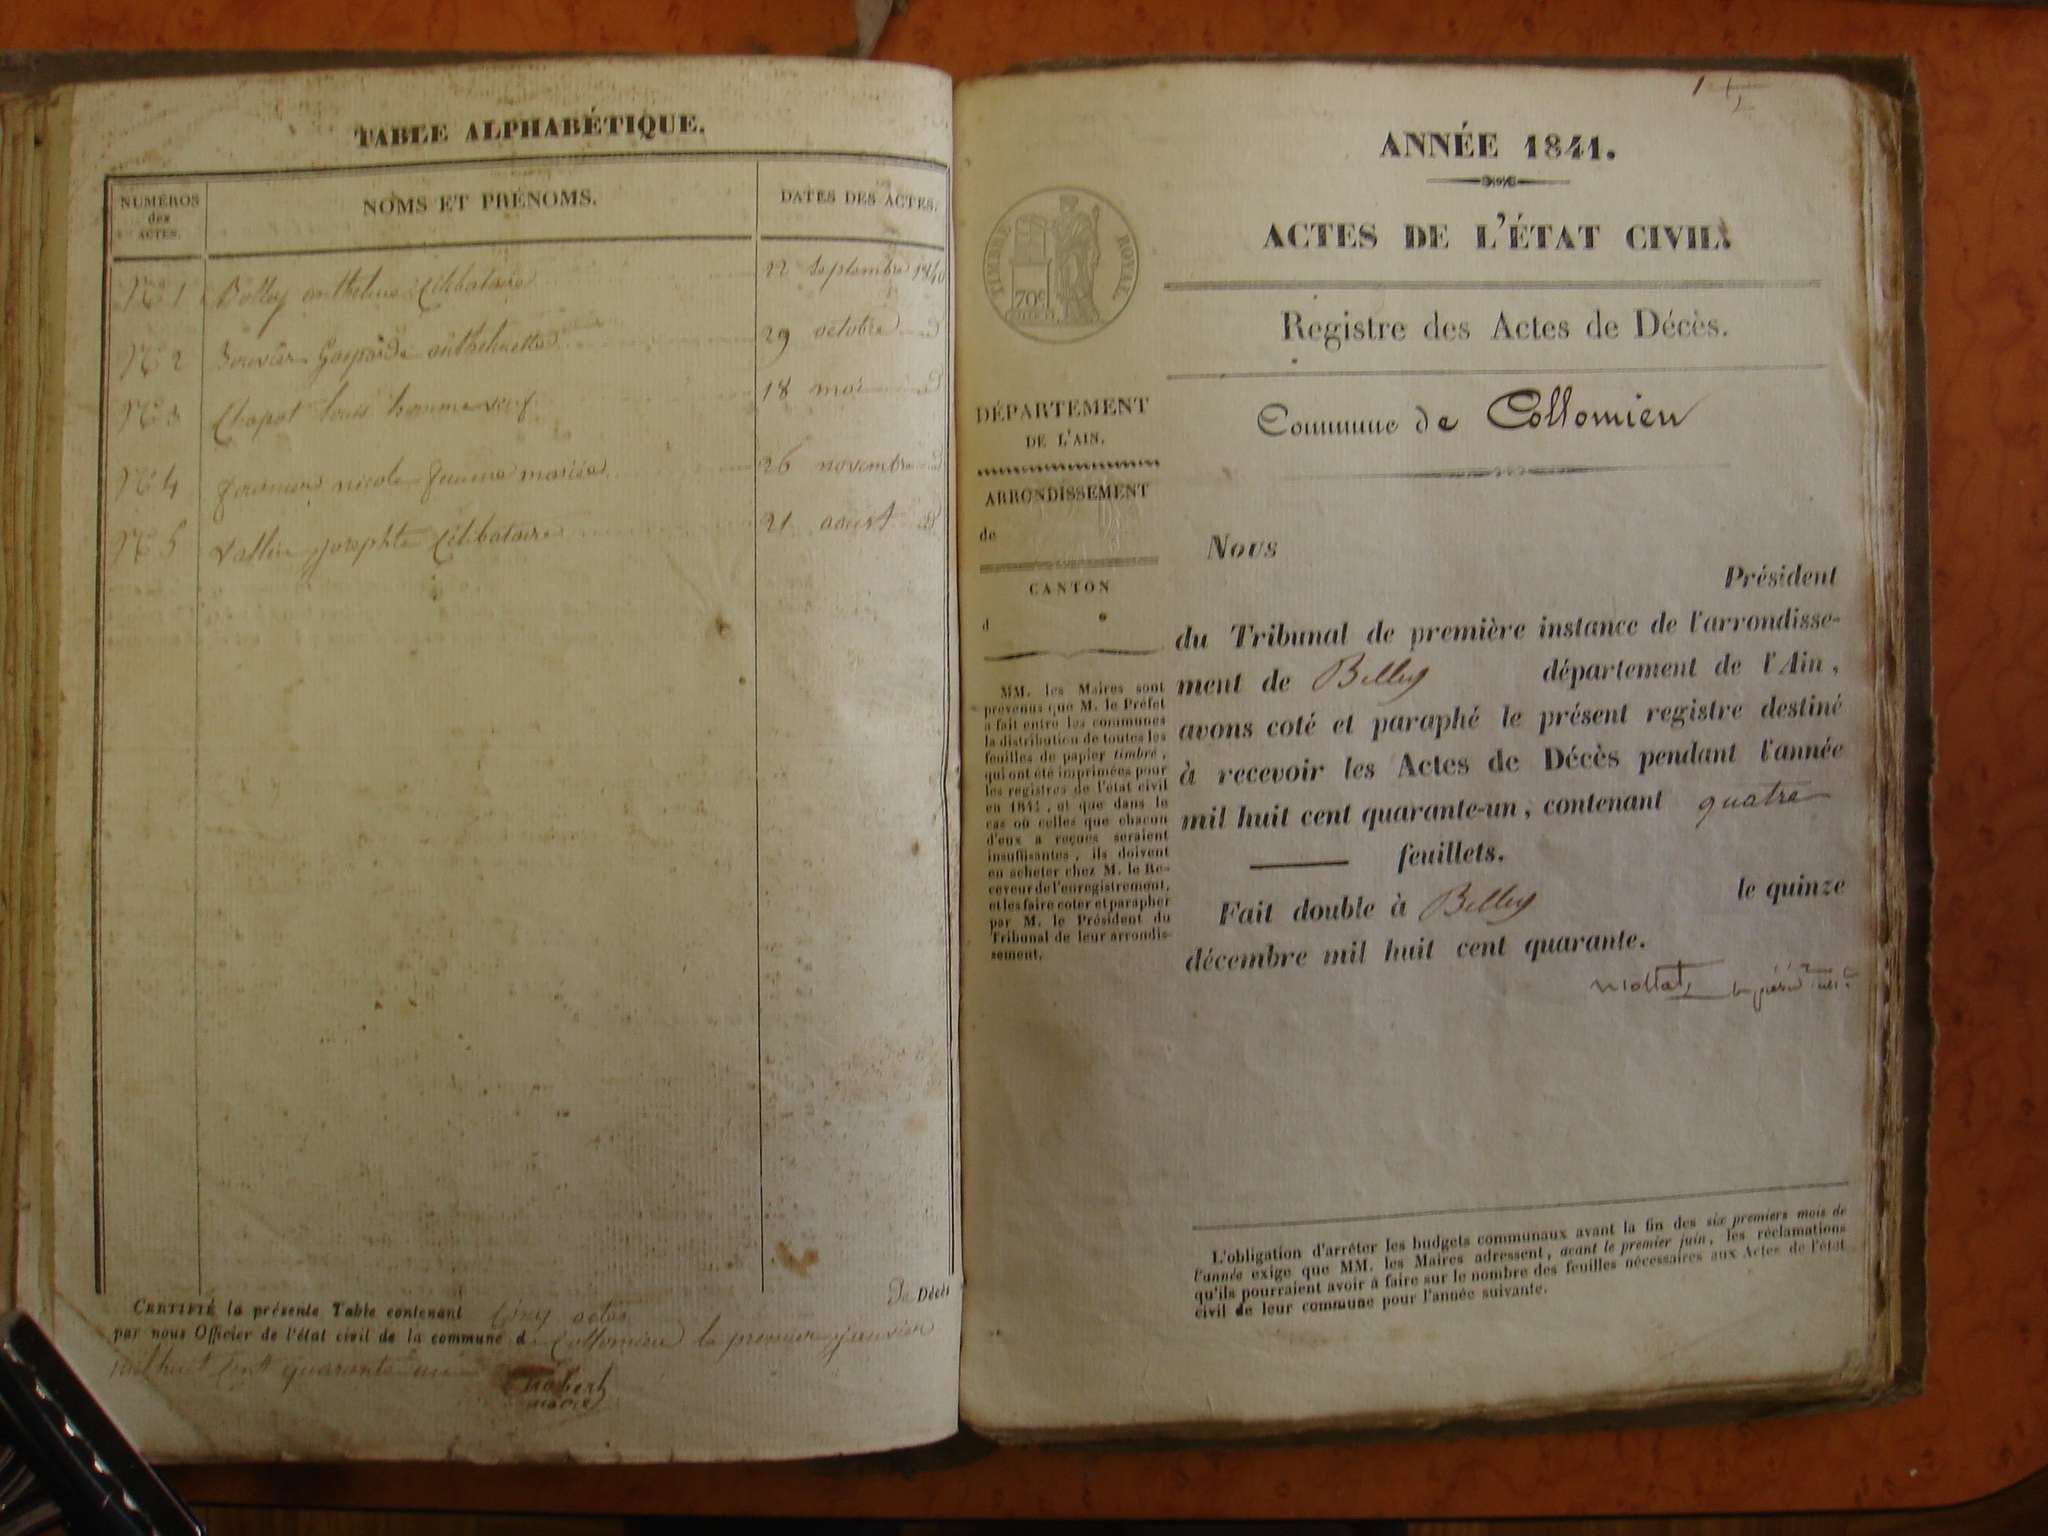 TABLE ALPHABÉTIQUE.
NUMÉROS
des
ACTES.
NOMS ET PRÉNOMS.
DATES DES ACTES.
N° 1 Bolley anthelme Célibataire 22 Septembre 1840
N° 2 Bouvier Gasparde anthelmette 29 octobre d
N° 3 Chapot louis homme veuf 18 mai d
N° 4 fournier nicole femme mariée 26 novembre d
N° 5 Vallin josephte Célibataire 21 aoust d
De Décès
CERTIFIÉ la présente Table contenant Cinq actes
par nous Officier de l'état civil de la commune de Collomieu le premier janvier
mil huit Cent quarante un
maire
1
ANNÉE 1841.
ACTES DE L'ÉTAT CIVIL.
TIMBRE ROYAL.
70c
Registre des Actes de Décès.
Commune de Collomieu
DÉPARTEMENT
DE L'AIN.
ARRONDISSEMENT
de
CANTON
d
MM. les Maires sont
prévenus que M. le Préfet
a fait entre les communes
la distribution de toutes les
feuilles de papier timbré,
qui ont été imprimées pour
les registres de l'état civil
en 1841, et que dans le
cas où celles que chacun
d'eux a reçues seraient
insuffisantes, ils doivent
en acheter chez M. le Re-
ceveur de l'enregistrement,
et les faire coter et parapher
par M. le Président du
Tribunal de leur arrondis-
sement.
Nous
Président
du Tribunal de première instance de l'arrondisse-
ment de Belley département de l'Ain,
avons coté et paraphé le présent registre destiné
à recevoir les Actes de Décès pendant l'année
mil huit cent quarante-un, contenant quatre
feuillets.
Fait double à Belley le quinze
décembre mil huit cent quarante.
L'obligation d'arrêter les budgets communaux avant la fin des six premiers mois de
l'année exige que MM. les Maires adressent, avant le premier juin, les réclamations
qu'ils pourraient avoir à faire sur le nombre des feuilles nécessaires aux Actes de l'état
civil de leur commune pour l'année suivante.